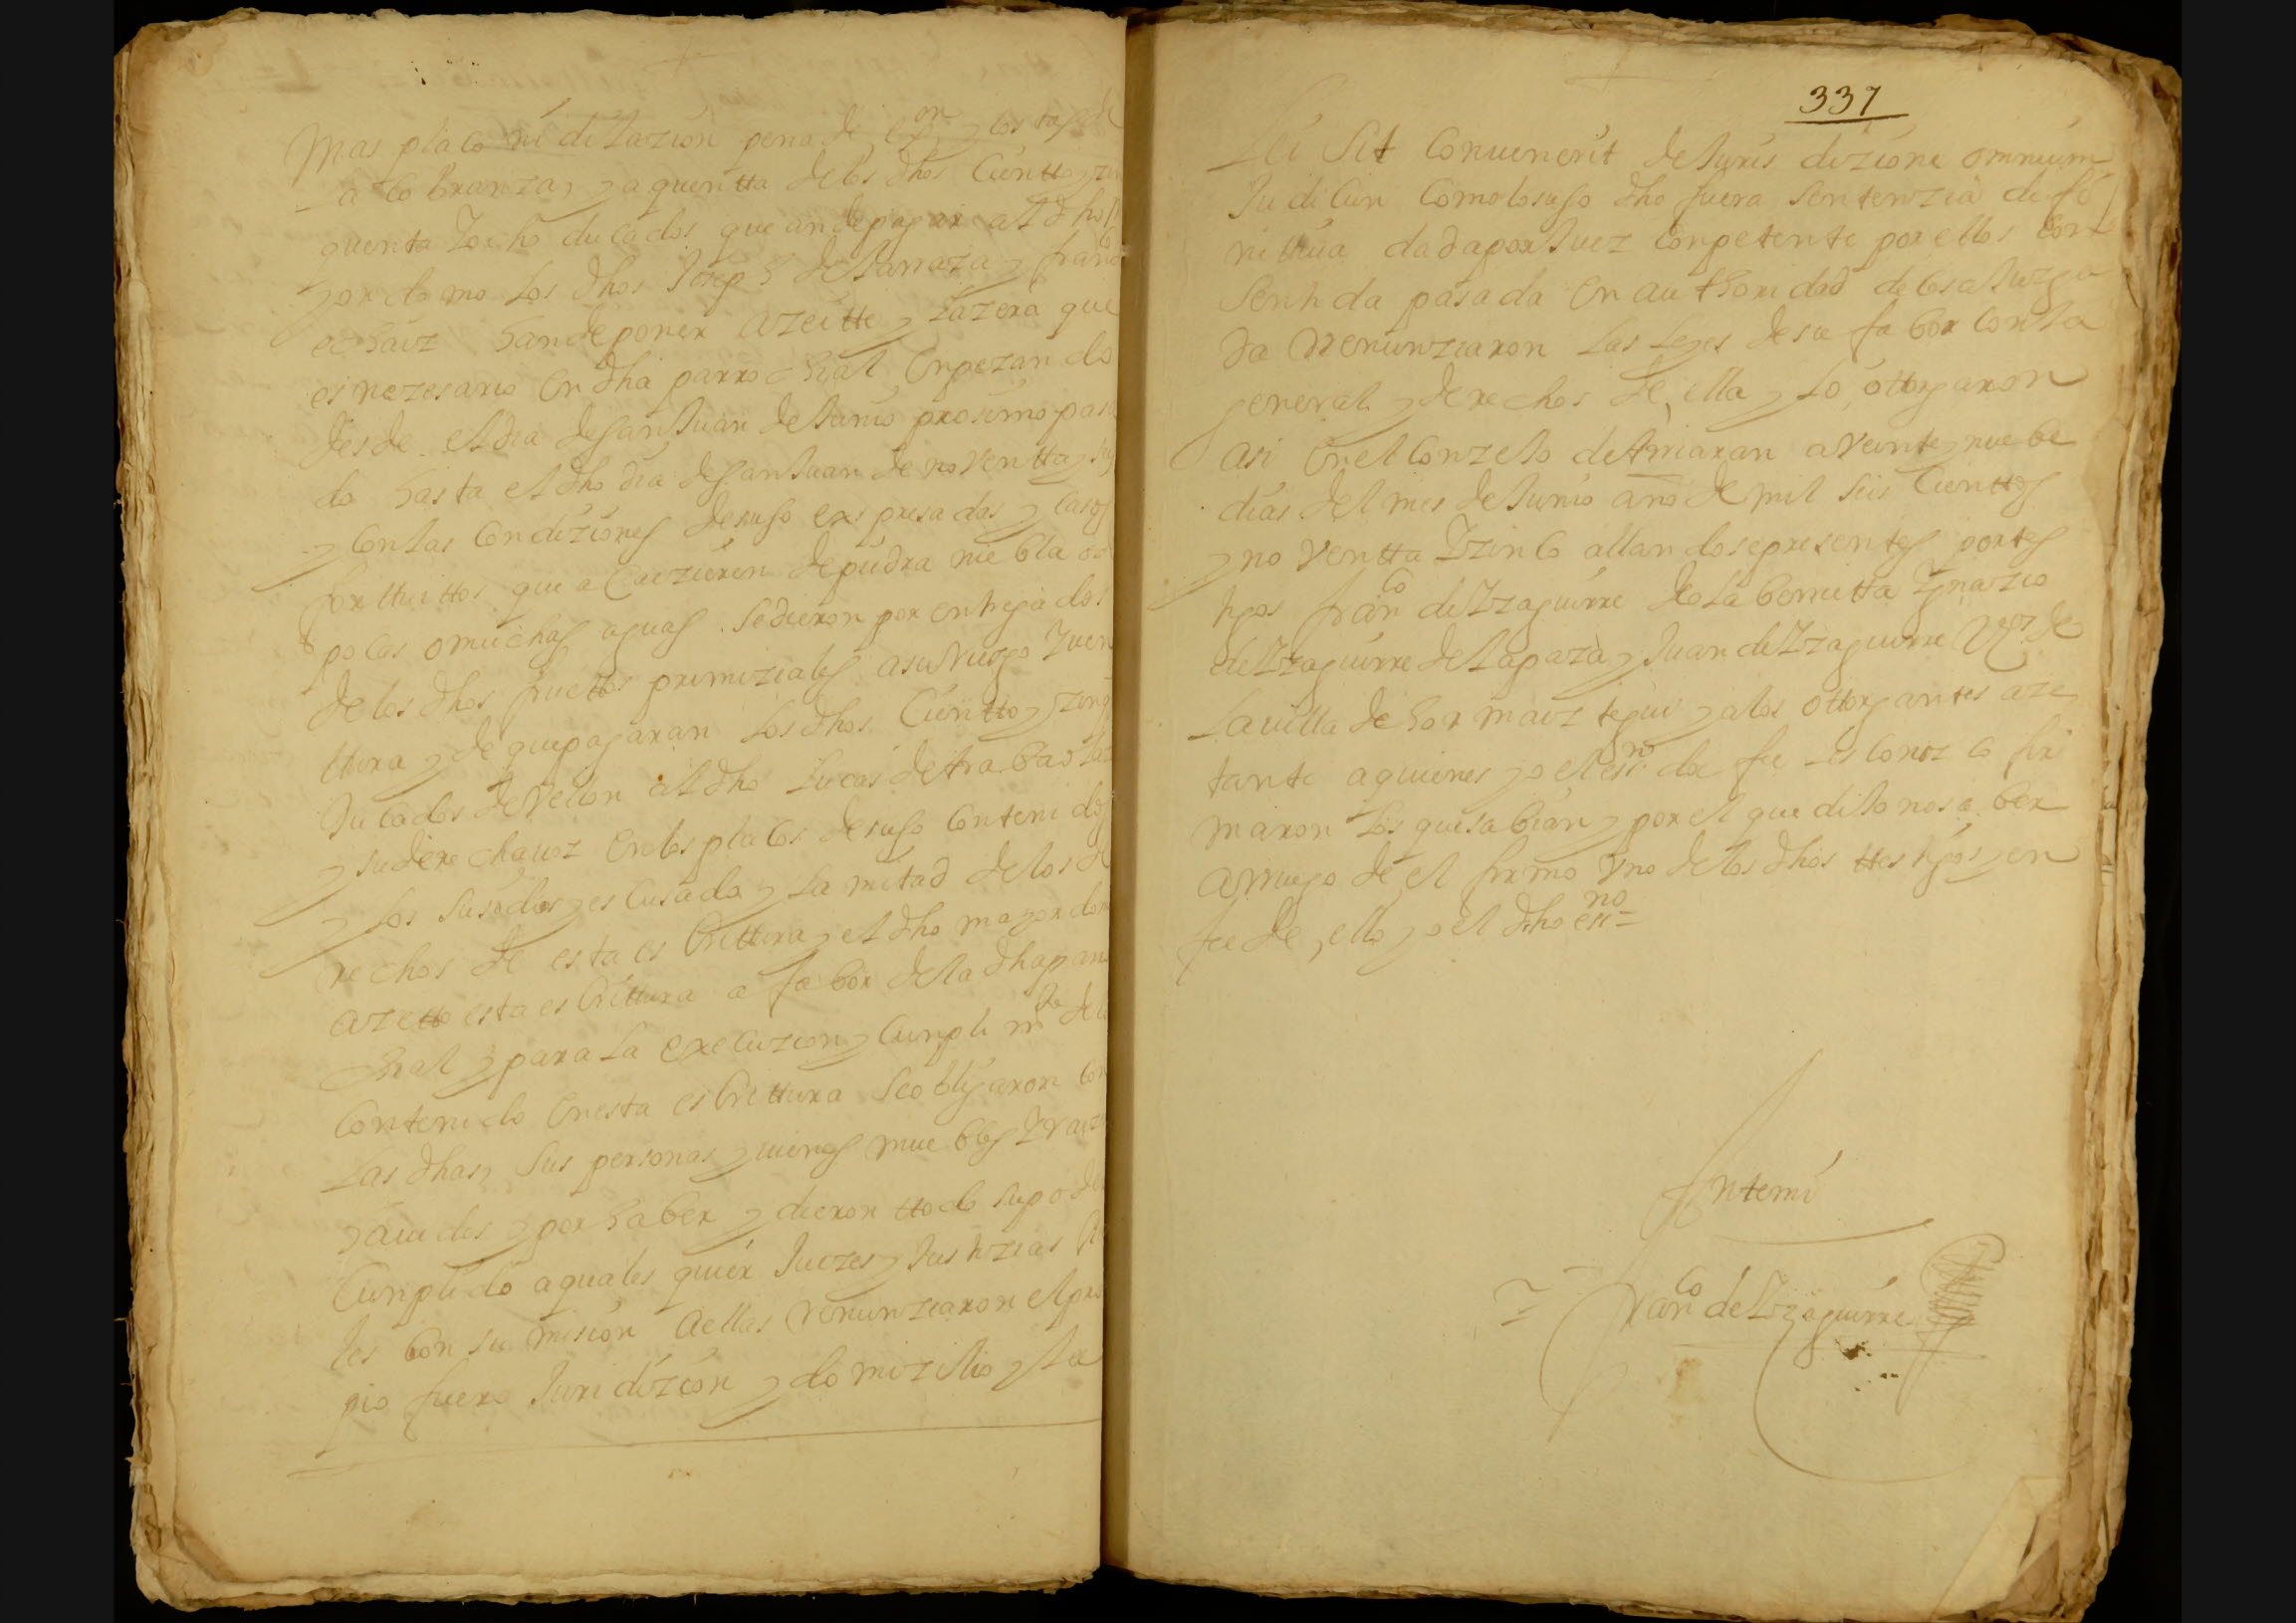 Mas plaço ni dilazion pena de ex.on y costas de
la cobranza, y a quentta de los dhos Ciento y zin
quenta Y ocho ducados que an de pagar al dho
yordomo los dhos Joseph de Larraza y fran.co
echaiz han de poner azeitte y zazera que
es nezesario en dha parrochial Enpezando
desde el dia de San Juan de Junio prosimo pasa
do hasta el dho dia de San Juan de noventta y
y con las Condiziones desuso expresadas y casos
forttuittos que a Caezieren de piedra niebla
pocas o muchas aguas. Se dieron por entregados
de los dhos fruettos primiziales a su riesgo Y ven
ttura y de que pagaran los dhos Cientto y zinq
ducados de Vellon al dho Lucas de
y su derecha voz en los plaços desuso contenidos
y los susodhos y escusada y la mitad de los de
rechos de esta escrittura y el dho mayordo
azetto esta escrittura a fabor de la dha parr
chial y para la execuzion y Cunplim.to de lo
contenido en esta escrittura se obligaron con
las dhas, sus personas y vienes muebles Y raiz
havidos y por haber y dieron ttodo su poder
Cunplido a quales quier Juezes y Justizias
les con sumision a ellas renunziaron el pro
pio fuero Juridizion y domizilio y la
337
Lei Sit Convenerit de Juris dizione omnium
Judicun Como lo suso dho fuera sentenzia defi
nitiua dada por Juez Conpetente por ellos Con
sentida pasada en authoridad de cosa Juzga
da Renunziaron las leyes de su fabor con la
general y derechos de, ella y lo, ottorgaron
asi En el Conzejo de Arriaran a Veinte y nuebe
dias del mes de Junio ano de mil Seis Cienttos
y noventta Y zinco allandose presentes por tes
tigos fran.co de Yzaguirre de la berrietta Ygnazio
de Yzaguirre de Lapaza y Juan de Yzaguirre Vez.o de
la villa de hormaiztegui y a los ottorgantes aze
tante a quienes yo el ess.no doi fee les conozco fir
maron los que sabian y por el que dijo no saber
a rruego de el firmo Vno de los dhos ttestigos y en
fee de, ello yo el dho ess.no =
Antemi
= Fran.co de Yzaguirre